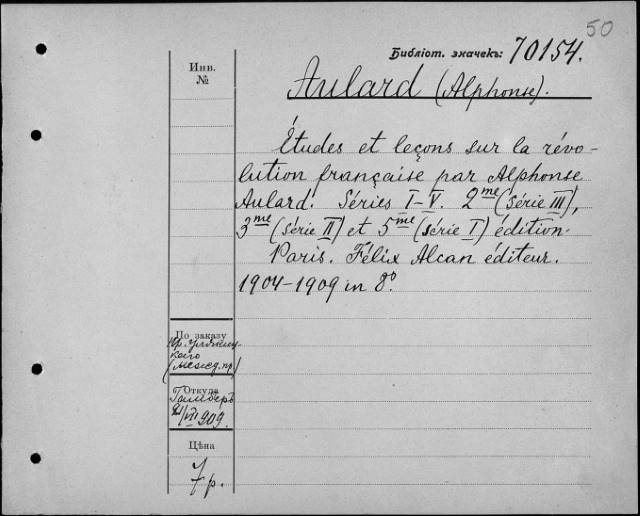 50
Библіот. значекъ: 70154.
Инв.
№
Aulard (Alphonse).
Études et leçons sur la révo-
lution française par Alphonse
Aulard. Séries I-V. 2me (série III),
3me (série II) et 5me (série I) édition.
Paris. Félix Alcan éditeur.
1904-1909 in 8º.
По заказу
Пр.
каго
(межд. пр.)
Откуда
/VII 909.
Цѣна
7 р.